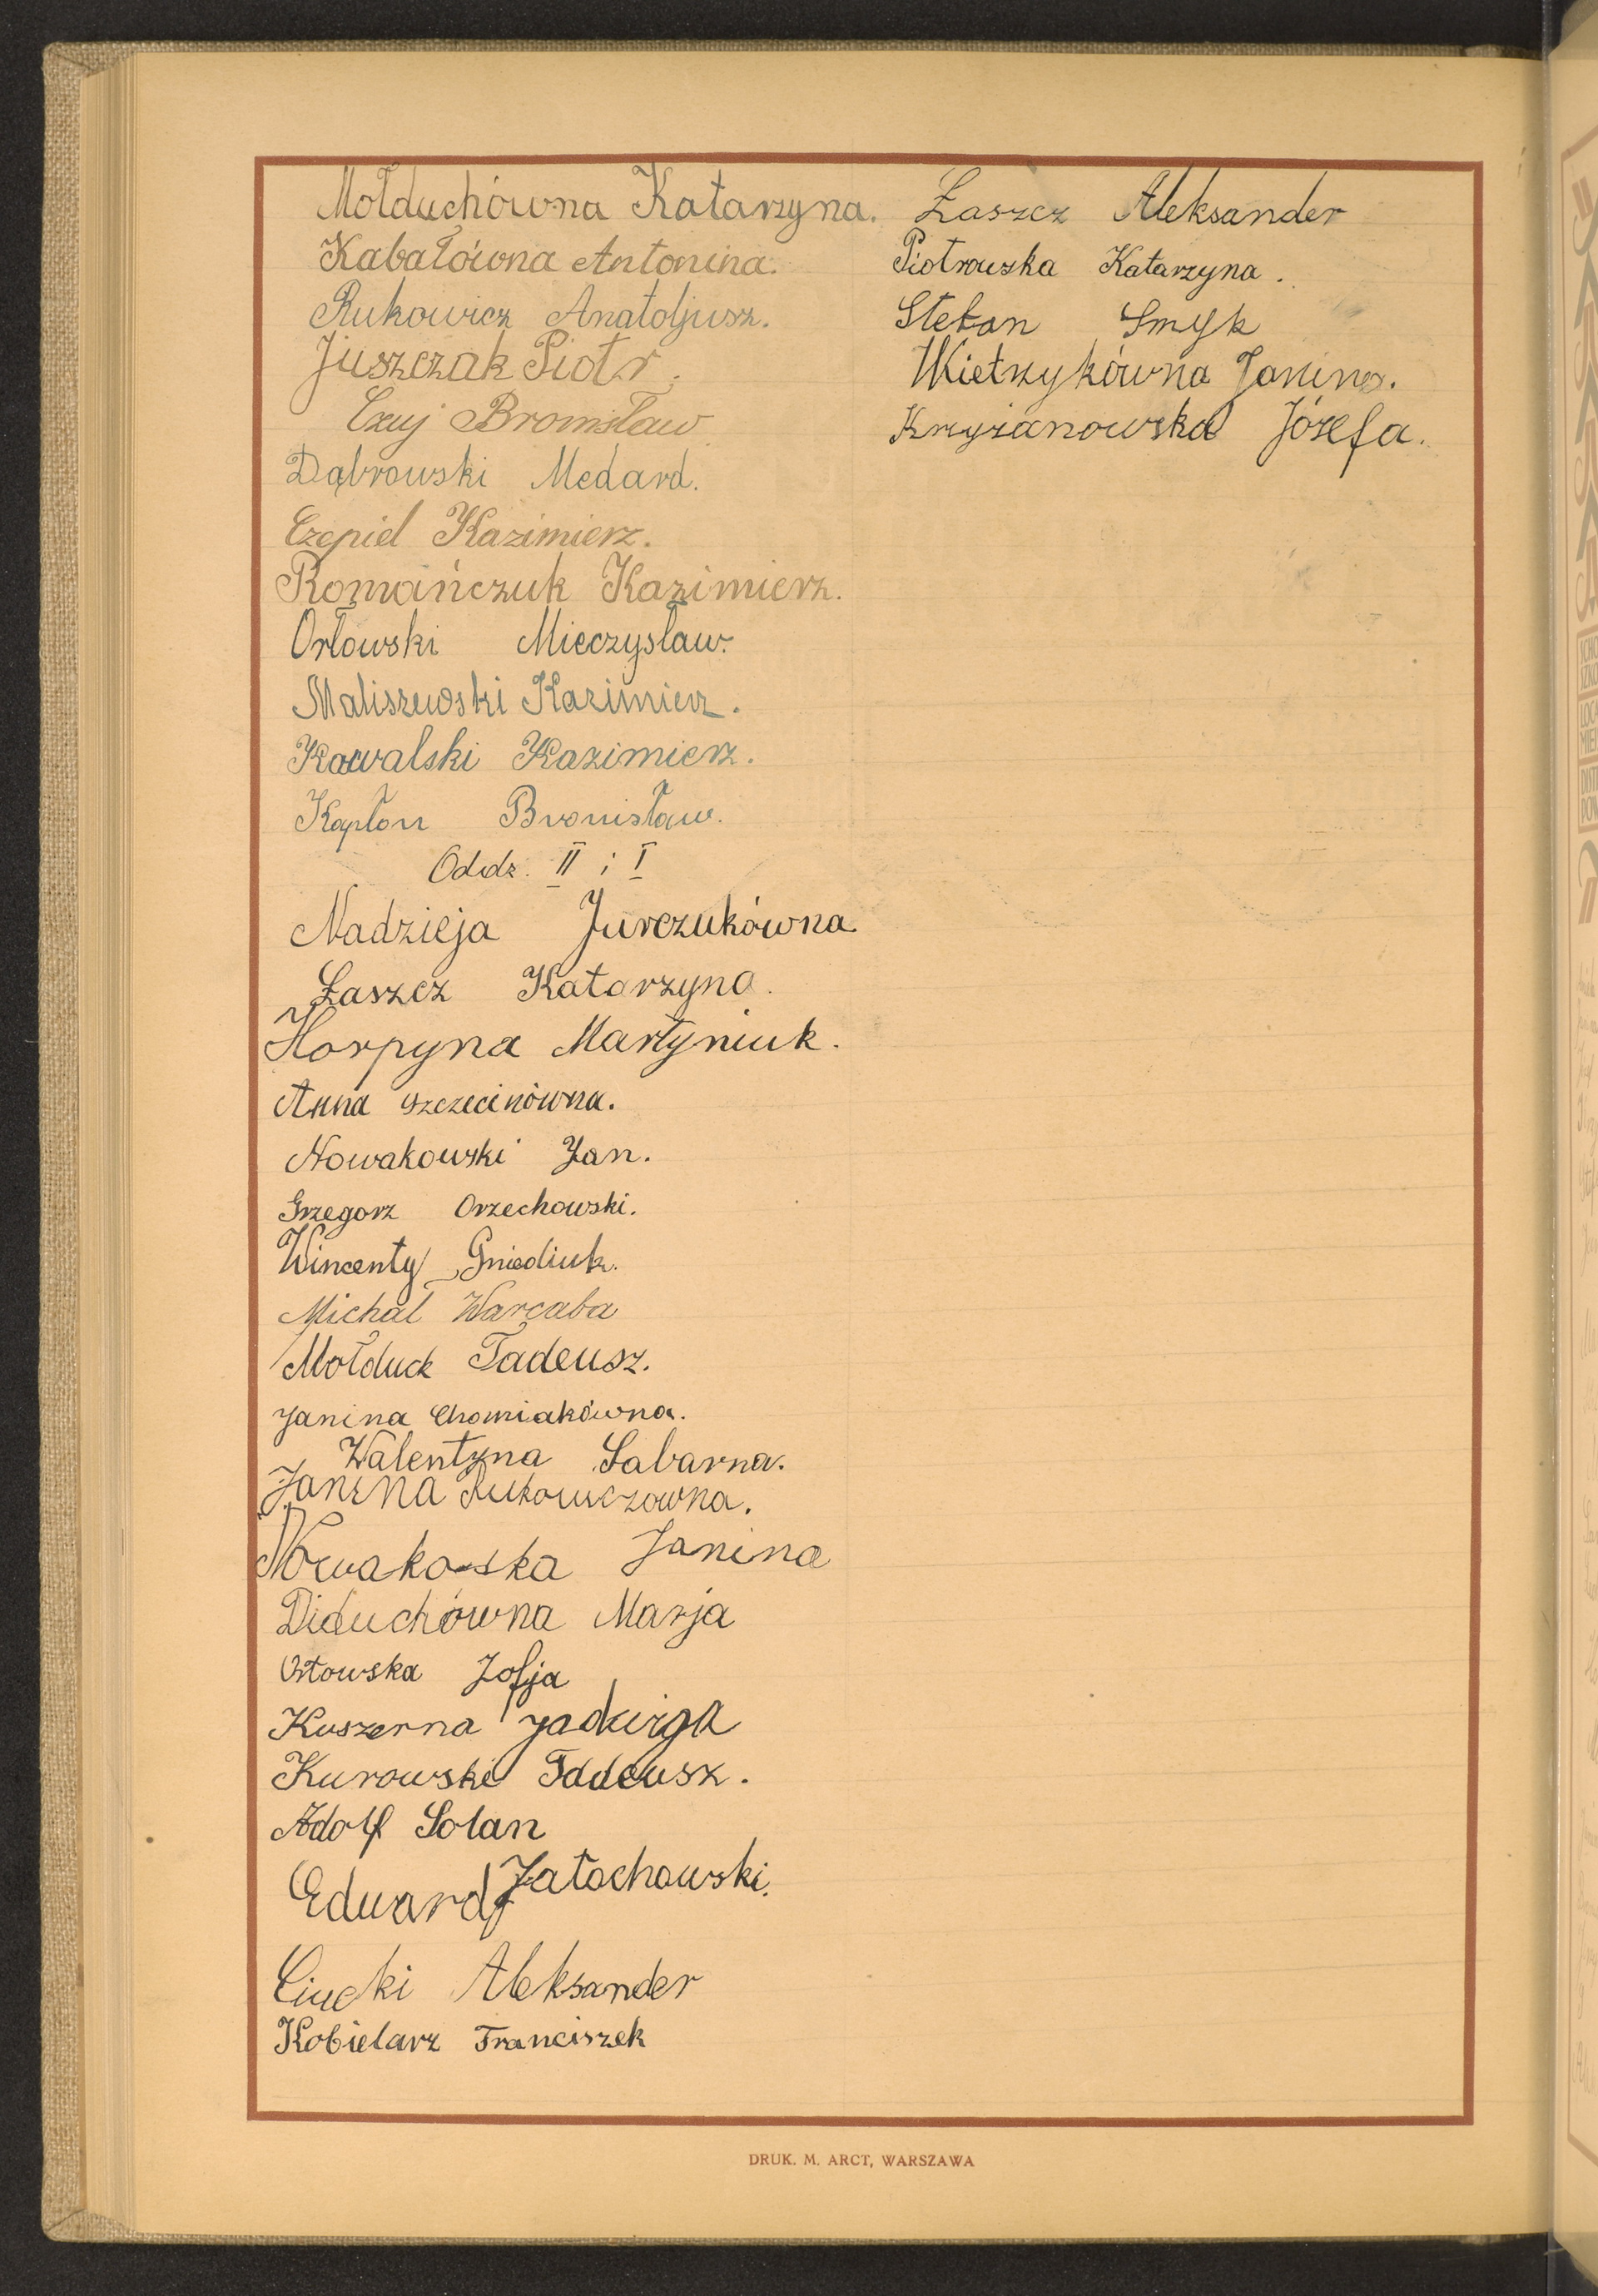 Mołduchówna Katarzyna.
Kabałówna Antonina.
Rukowicz Anatoljusz.
Juszczak Piotr.
Czuj Bronisław
Dąbrowski Medard.
Czepiel Kazimierz.
Romańczuk Kazimierz.
Orłowski Mieczysław.
Maliszewski Kazimierz.
Kowalski Kazimierz.
Kapłon Bronisław.
Oddz. II i I
Nadzieja Jurczukówna
Łaszcz Katarzyna.
Horpyna Martyniuk.
Anna Szczecinówna.
Nowakowski Jan.
Grzegorz Orzechowski.
Wincenty Gniediuk.
Michał Warcaba
Mołduch Tadeusz.
Janina Chomiakówna.
Walentyna Sabarna.
Janina Rukowiczowna.
Nowakowska Janina
Diduchówna Marja
Orłowska Zofja
Kuszerna
Kurowski Tadeusz.
Adolf Solan
Edward Załochowski.
Ciucki Aleksander
Kobielarz Franciszek
Łaszcz Aleksander
Piotrowska Katarzyna.
Stefan Smyk
Wietrzykówna Janina.
Krzyżanowska Józefa.
DRUK. M. ARCT, WARSZAWA